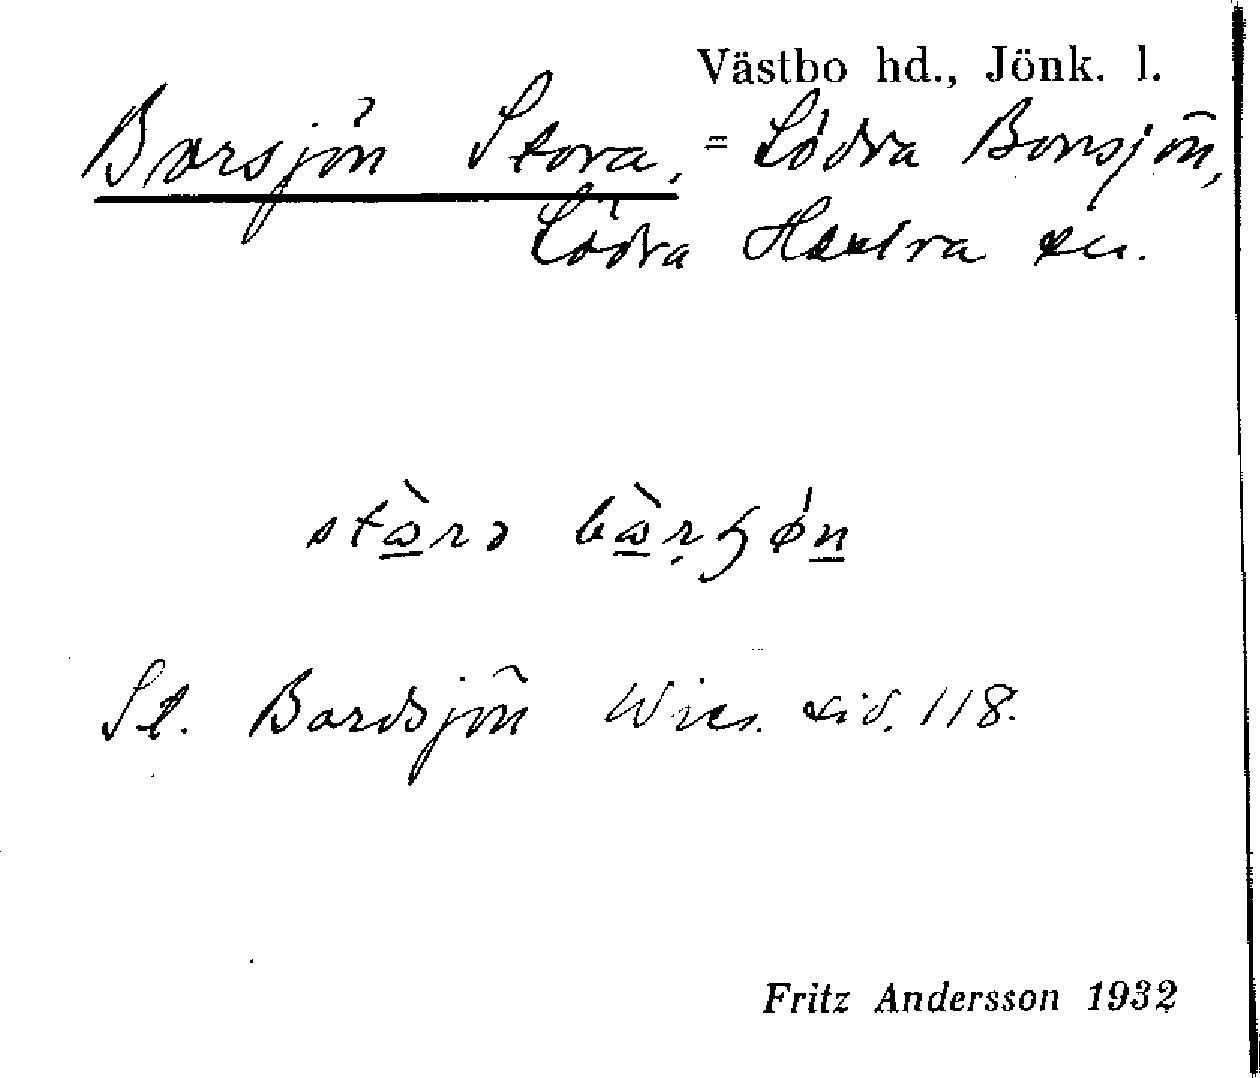 Västbo hd., Jönk. l.
Borsjön Stora, = Södra Borsjön,
Södra Hestra sn.
St. Bordsjön Wies. sid. 118.
Fritz Andersson 1932